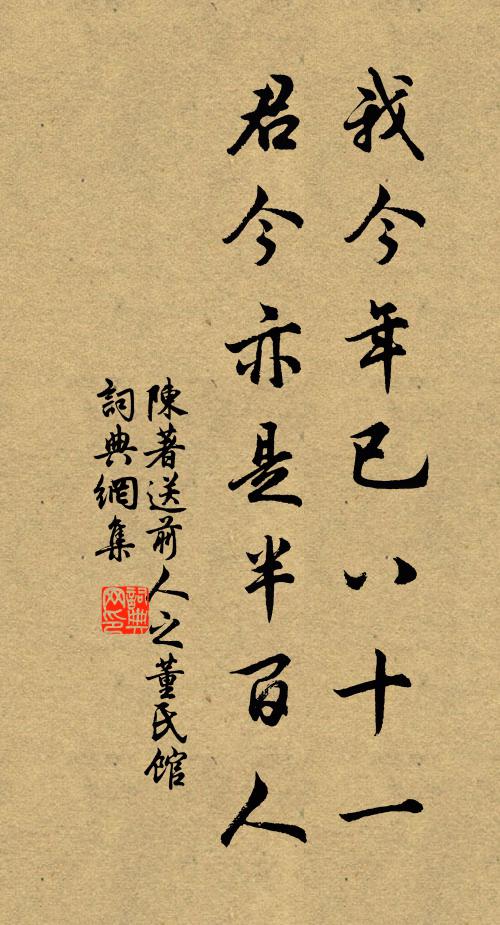 我今年已八十一
君今亦是半百人
陳著送前人之董氏館
詞典網集
詞典網印